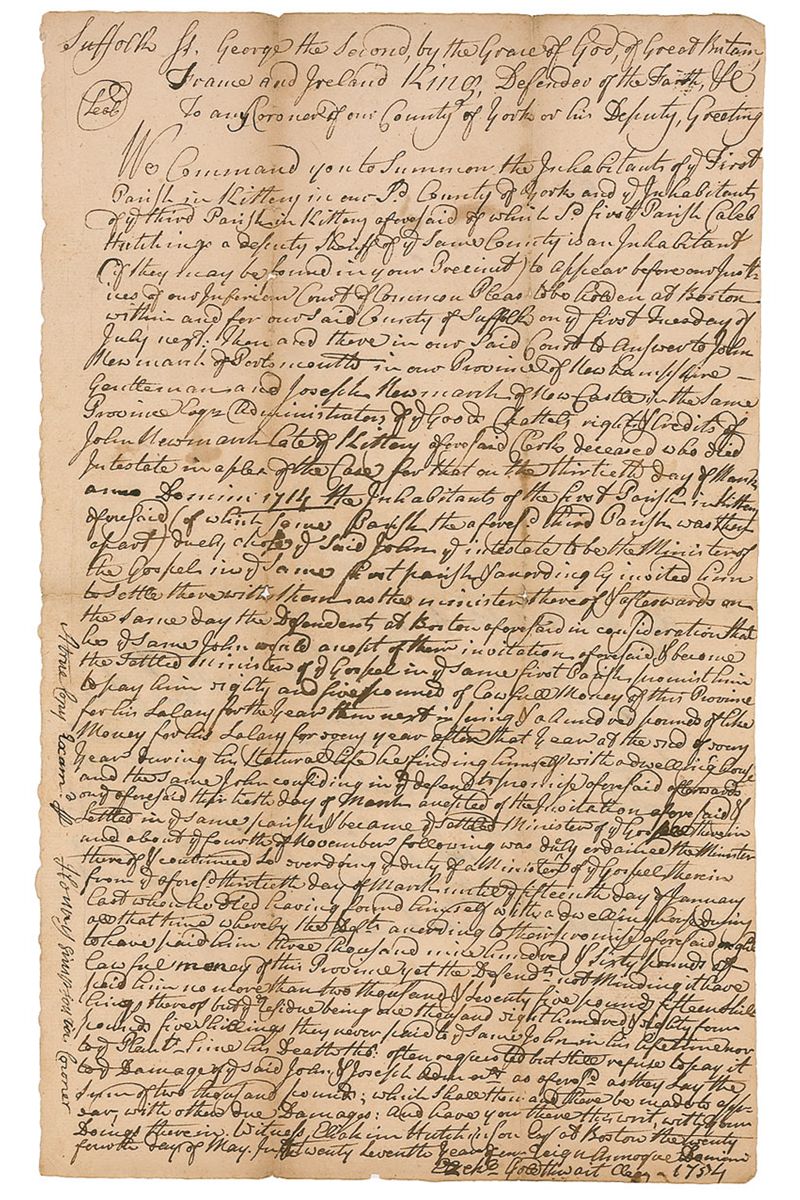 Suffolk Ss. George the Second, by the Grace of God, of Great Britain,
France and Ireland King, Defender of the Faith, &c
Seal
To any Coroner of our County of York or his Deputy, Greeting
We Command you to Summon the Inhabitants of ye First
Parish in Kittery in our Sd. County of York and ye Inhabitants
of ye third Parish in Kittery aforesaid of which Sd first Parish Caleb
Hutchings a deputy Sheriff of ye Same County is an Inhabitant
(if they may be found in your Precinct) to appear before our Just-
ices of our Inferiour Court of Common Pleas to be holden at Boston
within and for our Said County of Suffolk on ye first Tuesday of
July next: Then and there in our Said Court to Answer to John
Newmarch of Portsmouth in our Province of New Hampshire –
Gentleman and Joseph Newmarch of New Castle in the Same
Province Esqr Administrators of ye Goods Chattels rights & Credits of
John Newmarch late of Kittery aforesaid Clerk deceased who died
Intestate in a plea of the Case for that on the thirtieth day of March
anno Domini 1714 the Inhabitants of the first Parish in Kittery
aforesaid (of which Same Parish the afores'd third Parish was then
a part) duely chose ye Said John ye intestate to be the Minister of
the Gospel in ye Same first parish & accordingly invited him
to Settle there with them as the minister thereof & afterwards on
the Same day the Defendents at Boston aforesaid in consideration that
he ye Same John would accept of their invitation aforesaid & become
the Settled minister of ye Gospel in ye Same first Parish promist him
to pay him eighty and five pounds of Lawfull Money of this Province
for his Salary for the Year then next insuing & a hundred pounds of like
Money for his Salary for every year after that Year at the end of every
Year during his Natural life he finding himself with a dwelling house
and the same John confiding in ye defendts promise aforesaid afterwards
on ye aforesaid thirtieth day of March accepted of the Invitation aforesaid &
Settled in ye Same parish & became ye Settled Minister of ye Gospel therein
and about ye fourth of November following was duly ordained the Minister
thereof & continued so ever doing ye duty of a Minister of ye Gospel therein
from ye afores'd thirtieth day of March until ye fifteenth day of January
Last when he died having found himself with a dwelling house during
all that time whereby the Defts according to their promise aforesaid ought
to have paid him three thousand nine hundred & Sixty pounds of
lawful money of this Province yet the Defendts not minding it have
paid him no more than two thousand & Seventy five pounds fifteen shil-
lings thereof but ye residue being one thousand eight hundred & eighty four
pounds five Shillings they never paid to ye Same John in his life time nor
to ye Plants Since his Death tho' often requested but still refuse to pay it
to ye Damage of ye said John & Joseph Admrs as afores'd as they Say the
Sum of two thousand pounds; which Shall then and there be made to app-
ear, with other due Damages: and have you there this writ, with your
Doings therein. Witness, Eliakim Hutchinson Esq at Boston the twenty
fourth day of May. In ye twenty Seventh Year of our Reign Annoque Domini
Ezekl Goldthwait Cler – 1754
A true Copy Examd